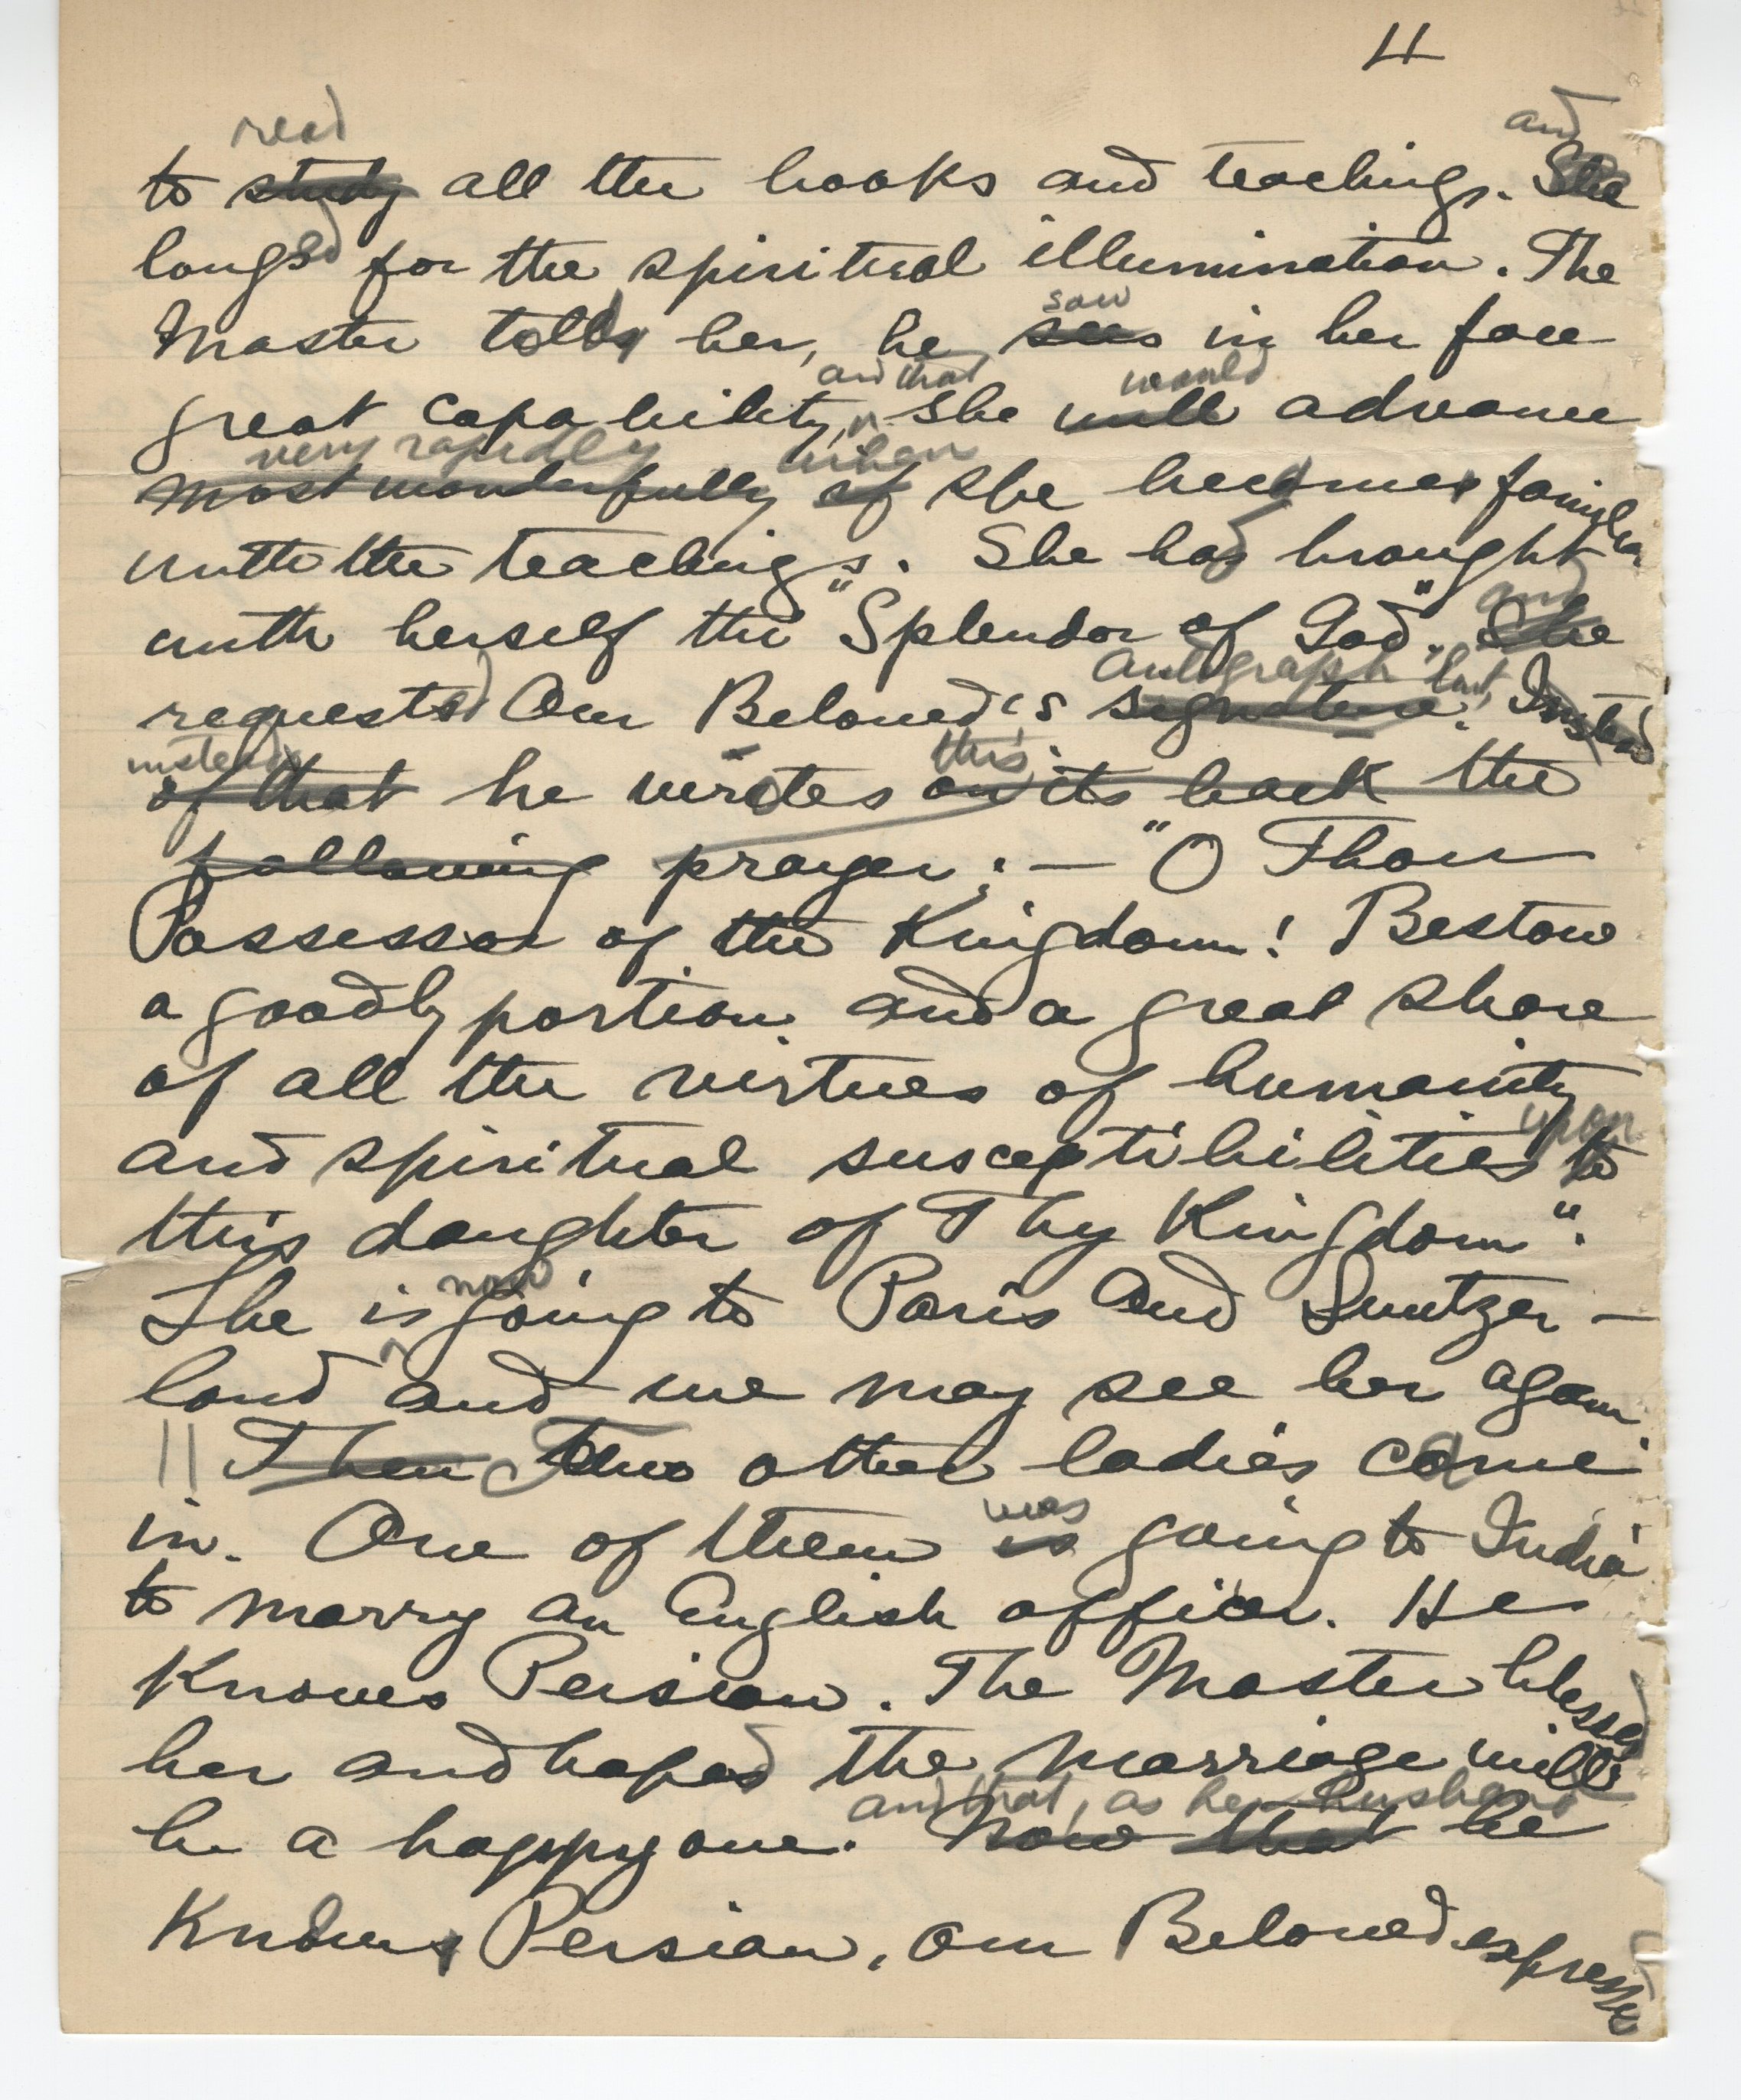 11
read and
to study all the books and teachings. She
longed for the spiritual illumination. The
saw
Master told her, he sees in her face
and that would
great capability, she will advance
very rapidly when
most wonderfully if she becomes familiar
with the teachings. She had brought
with herself the "Splendor of God". She
and
autograph but
requested Our Beloved's signature. Instead
instead this
of that he writes on its back the
following prayer:— "O Thou
Possessor of the Kingdom! Bestow
a goodly portion and a great share
of all the virtues of humanity
upon
and spiritual susceptibilities to
this daughter of Thy Kingdom".
now
She is going to Paris and Switzer-
land and we may see her again.
Then Two other ladies came
was
in. One of them is going to India
to marry an English officer. He
Knows Persian. The Master blessed
her and hoped the marriage will
and that, as her husband
be a happy one. Now that he
Knows Persian, our Beloved expressed